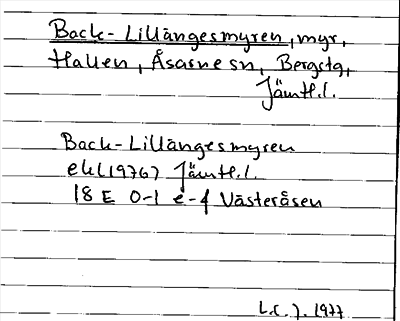 Back-Lillängesmyren, myr,
Hallen, Åsarne sn, Bergstg,
Jämtl.l.
Back-Lillängesmyren
ekl(1976) Jämtl.l.
18 E 0-1 e-f Västeråsen
L.C.J. 1977